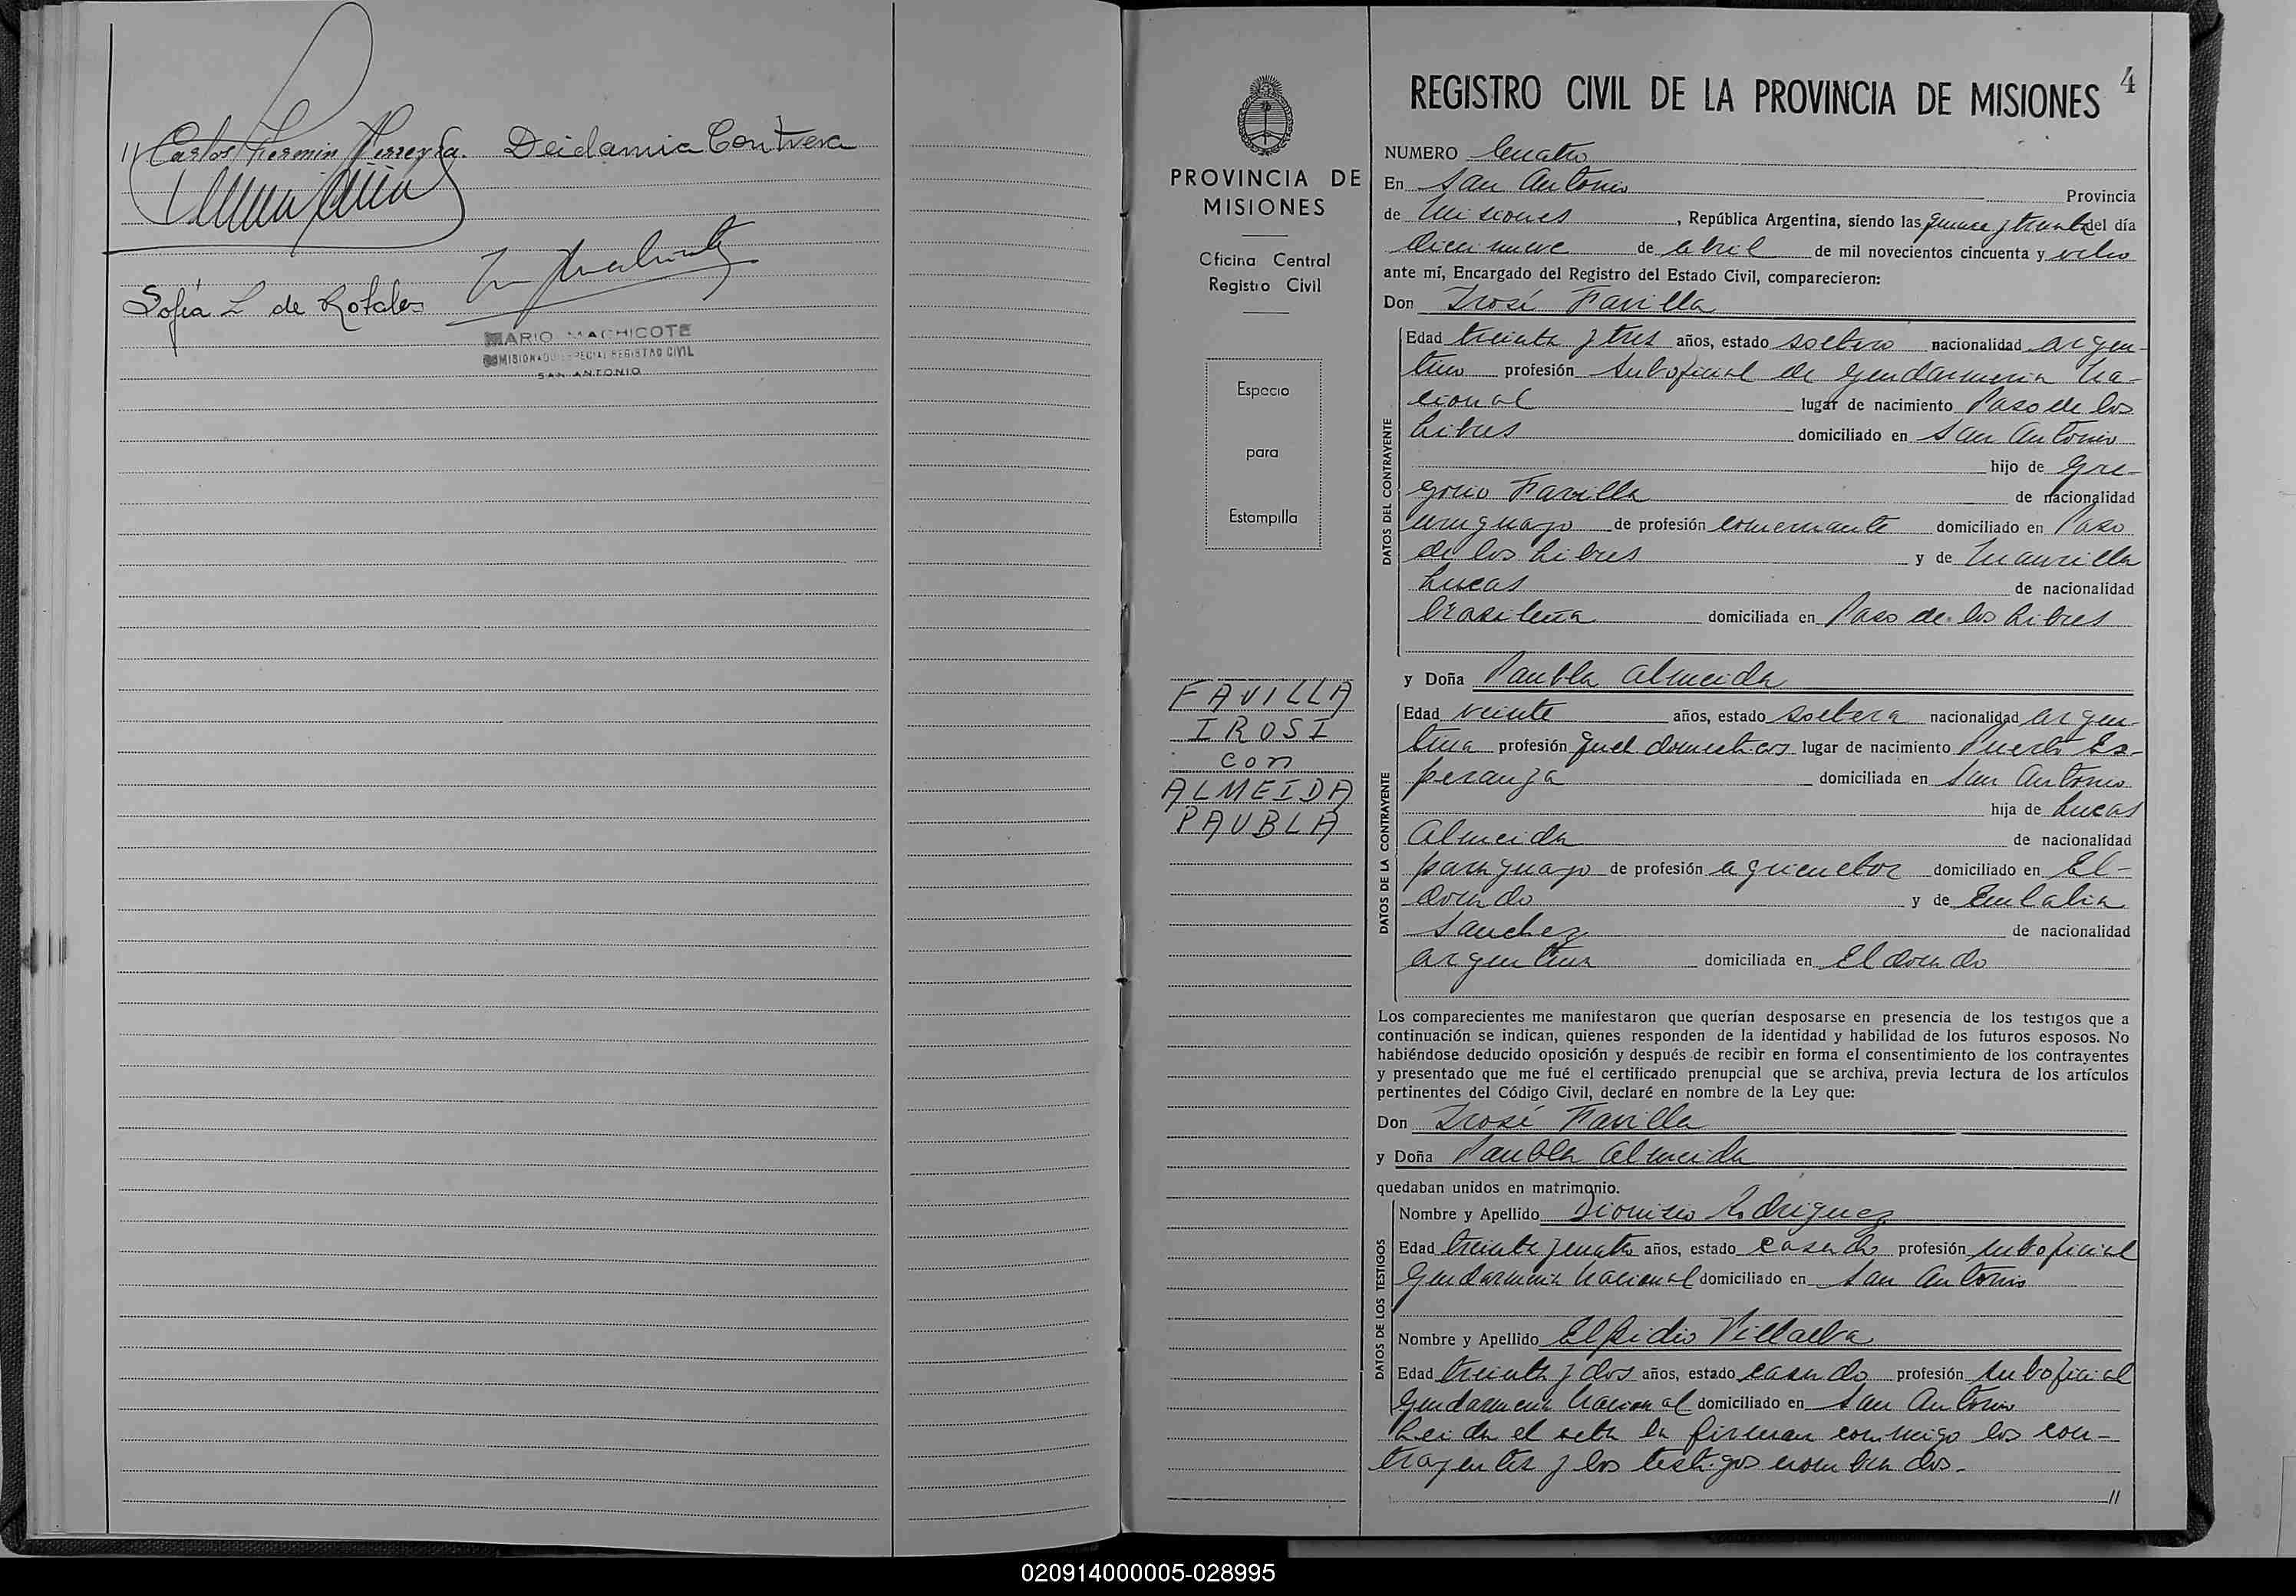 // Carlos Fermin Pereyra. Deidamia Contrera
Sofía L de Rotales
MARIO MACHICOTE
COMISIONADO ESPECIAL REGISTRO CIVIL
SAN ANTONIO
PROVINCIA DE
MISIONES
Oficina Central
Registro Civil
Espacio
para
Estampilla
FAVILLA
IROSI
con
ALMEIDA
PAUBLA
4
REGISTRO CIVIL DE LA PROVINCIA DE MISIONES
NUMERO Cuatro
En San Antonio Provincia
de Misiones, República Argentina, siendo las quince y treinta del día
diecinueve de abril de mil novecientos cincuenta y ocho
ante mí, Encargado del Registro del Estado Civil, comparecieron:
Don Irosí Favilla
DATOS DEL CONTRAYENTE
Edad treinta y tres años, estado soltero nacionalidad argen-
tino profesión Suboficial de Gendarmeria Na-
cional lugar de nacimiento Paso de los
Libres domiciliado en San Antonio
hijo de Gre-
gorio Favilla de nacionalidad
uruguayo de profesión comerciante domiciliado en Paso
de los Libres y de Maurilla
Lucas de nacionalidad
brasileña domiciliada en Paso de los Libres
y Doña Paubla Almeida
DATOS DE LA CONTRAYENTE
Edad veinte años, estado soltera nacionalidad argen-
tina profesión queh domesticos lugar de nacimiento Puerto Es-
peranza domiciliada en San Antonio
hija de Lucas
Almeida de nacionalidad
paraguayo de profesión agricultor domiciliado en El-
dorado y de Eulalia
Sanchez de nacionalidad
argentina domiciliada en Eldorado
Los comparecientes me manifestaron que querían desposarse en presencia de los testigos que a
continuación se indican, quienes responden de la identidad y habilidad de los futuros esposos. No
habiéndose deducido oposición y después de recibir en forma el consentimiento de los contrayentes
y presentado que me fué el certificado prenupcial que se archiva, previa lectura de los artículos
pertinentes del Código Civil, declaré en nombre de la Ley que:
Don Irosí Favilla
y Doña Paubla Almeida
quedaban unidos en matrimonio.
DATOS DE LOS TESTIGOS
Nombre y Apellido Dionisio Rodriguez
Edad treinta y cuatro años, estado casado profesión suboficial
Gendarmeria Nacional domiciliado en San Antonio
Nombre y Apellido Elpidio Villalba
Edad treinta y dos años, estado casado profesión suboficial
Gendarmeria Nacional domiciliado en San Antonio
Leida el acta la firman conmigo los con-
trayentes y los testigos nombrados.
//
020914000005-028995